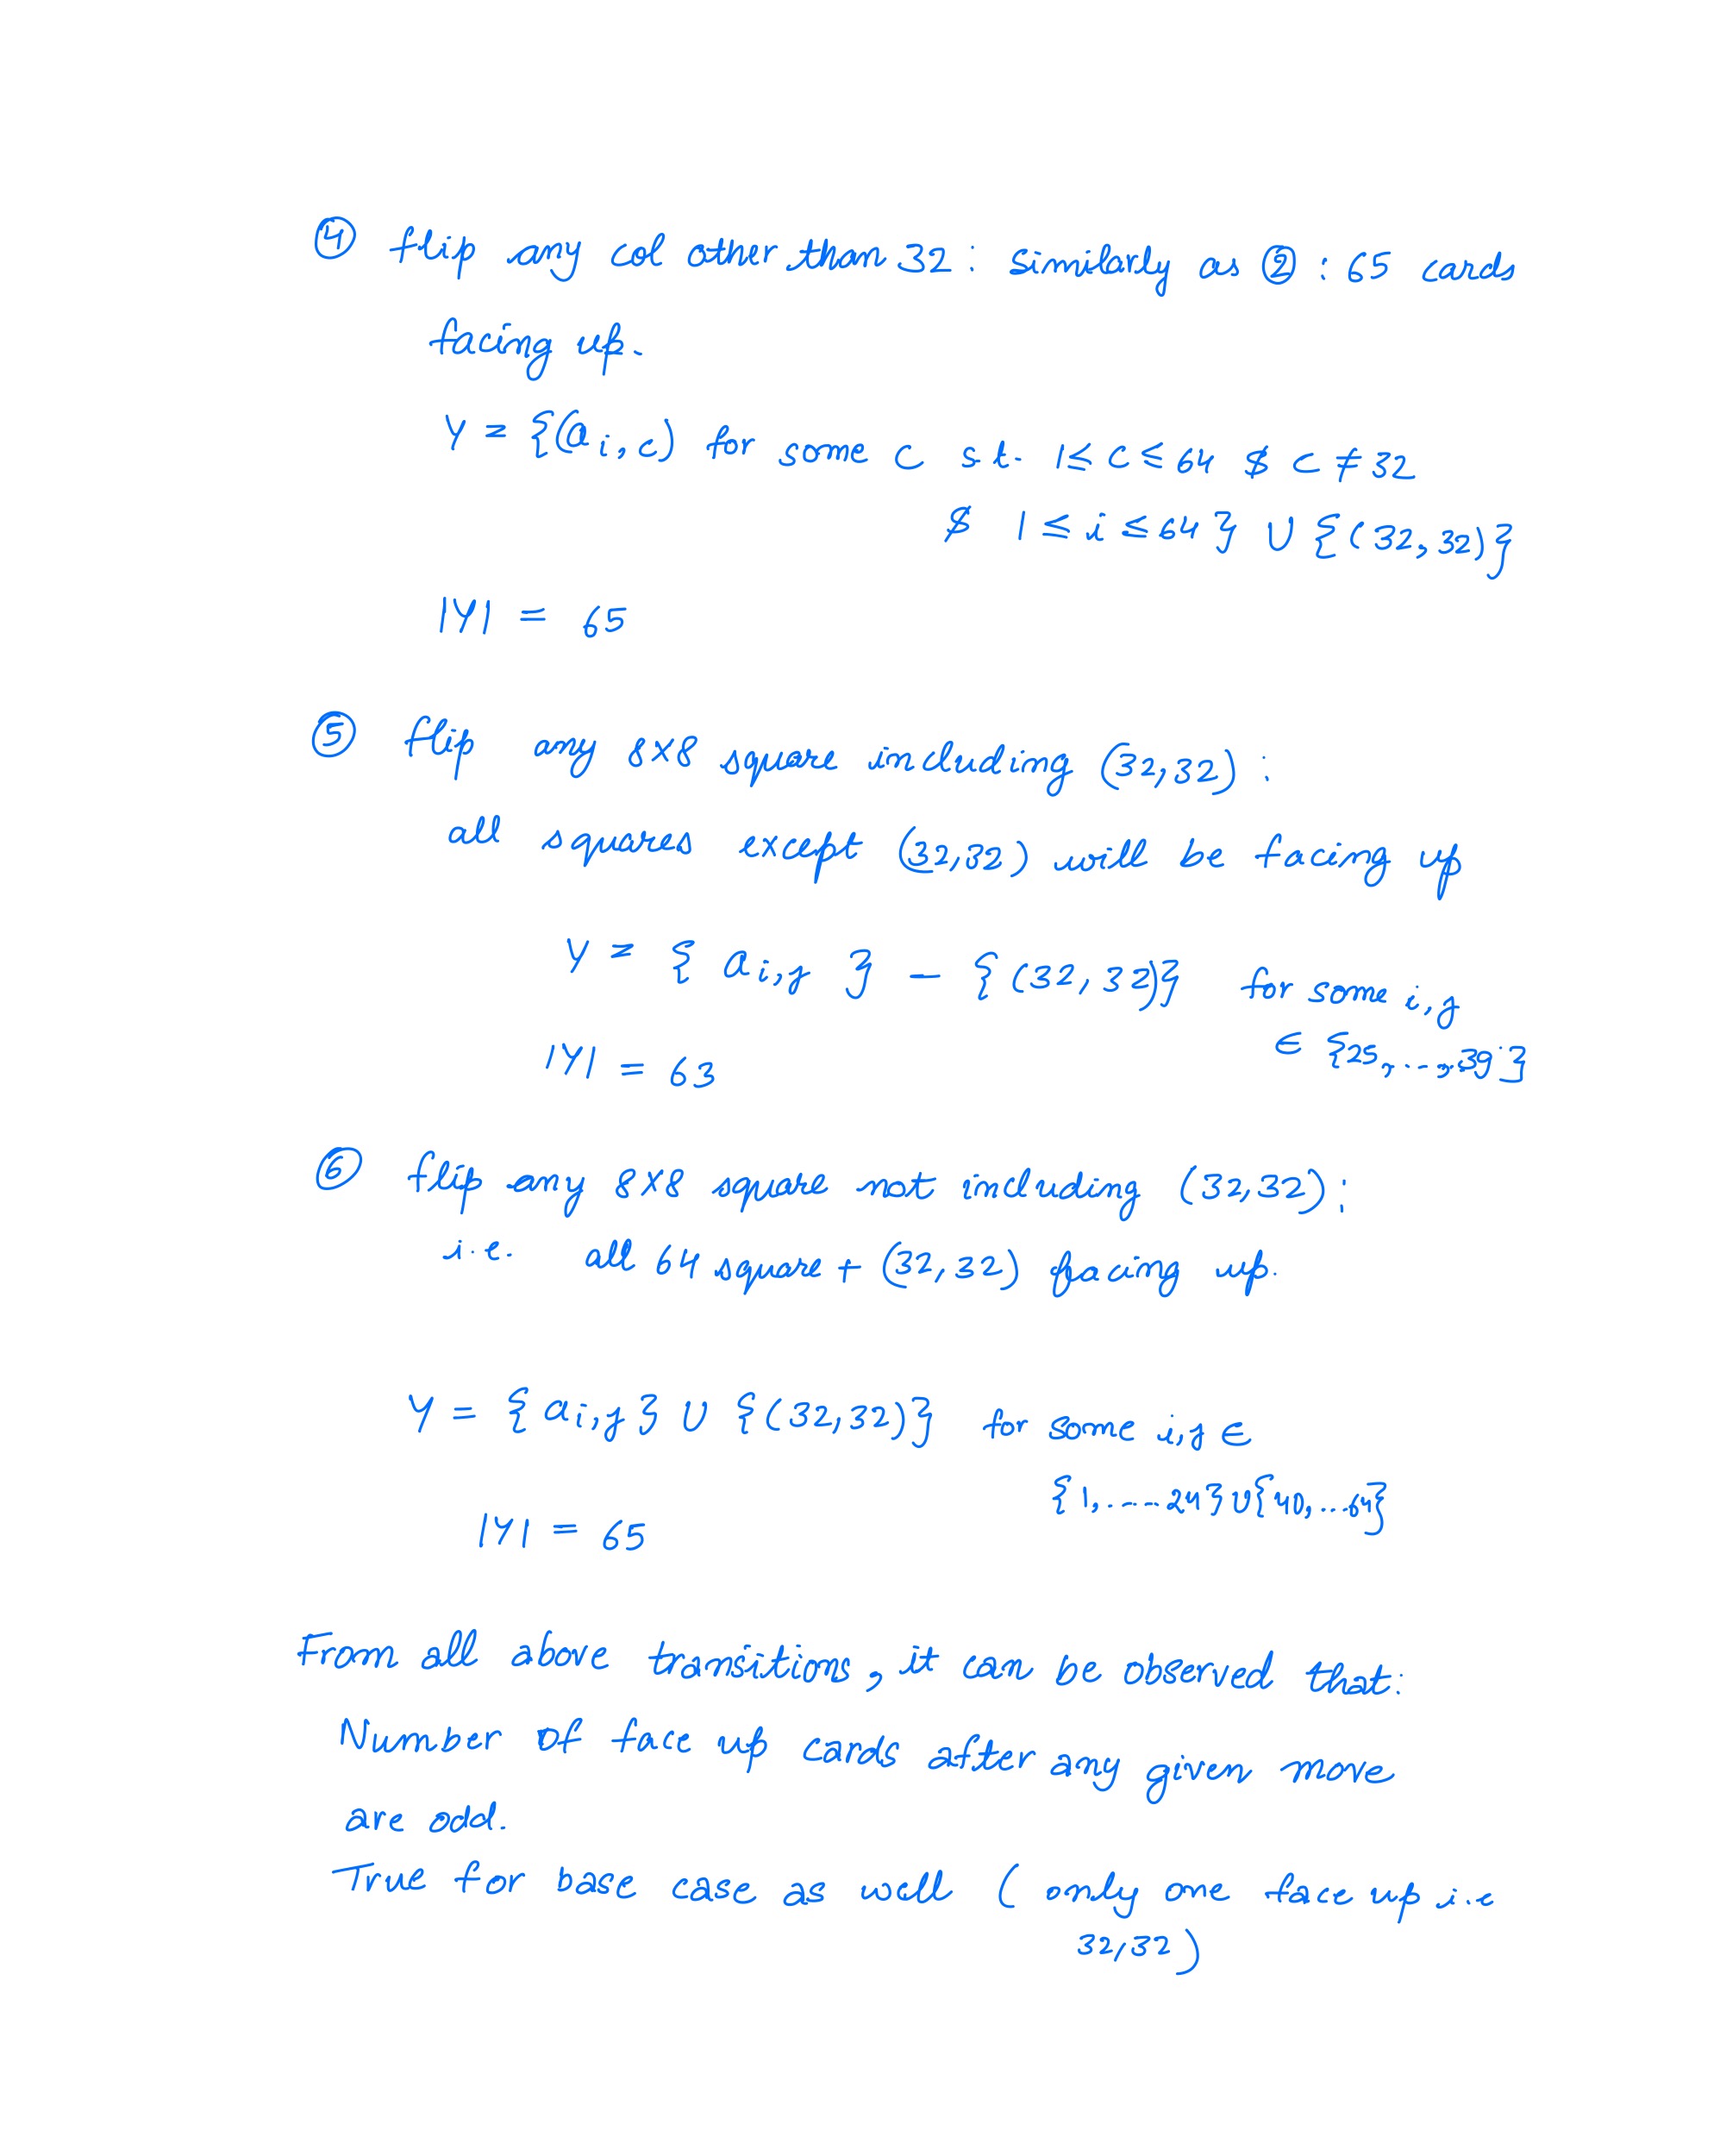 ④ flip any col other than 32 : similarly as ② : 65 cards
facing up.
Y = {(a i, c) for some c s.t. 1 ≤ c ≤ 64 $ c ≠ 32
$ 1 ≤ i ≤ 64 } ∪ {(32, 32)}
|Y| = 65
⑤ flip any 8×8 square including (32,32) :
all squares except (32,32) will be facing up
Y = { a i,j } − {(32, 32)} for some i,j
∈ {25,...,39}
|Y| = 63
⑥ flip any 8×8 square not including (32,32) :
i.e. all 64 square + (32,32) facing up.
Y = { a i,j } ∪ {(32,32)} for some i,j ∈
{1,.....24} ∪ {40,...64}
|Y| = 65
From all above transitions, it can be observed that:
Number of face up cards after any given move
are odd.
True for base case as well ( only one face up i.e
32,32 )